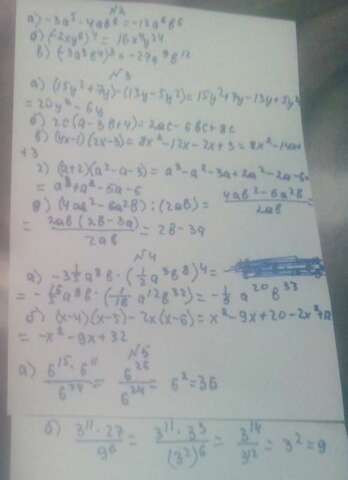 №2
а) -3a⁵ · 4ab⁶ = -12a⁶b⁶
б) (-2xy⁶)⁴ = 16x⁴y²⁴
в) (-3a³b⁴)³ = -27a⁹b¹²
№3
а) (15y²+7y)-(13y-5y²)=15y²+7y-13y+5y²
=20y²-6y
б) 2c(a-3b+4)=2ac-6bc+8c
в) (4x-1)(2x-3)=8x²-12x-2x+3=8x²-14x
+3
г) (a+2)(a²-a-3)=a³-a²-3a+2a²-2a-6=
=a³+a²-5a-6
д) (4ab²-6a²b):(2ab)= (4ab²-6a²b)/2ab =
= 2ab(2b-3a)/2ab = 2b-3a
№4
а) -3 1/5 a⁸b · (-1/2 a³b⁸)⁴ =
= -16/5 a⁸b · (-1/16 a¹²b³²) = -1/5 a²⁰b³³
б) (x-4)(x-5)-2x(x-6)=x²-9x+20-2x²+12
= -x²-9x+32
№5
а) 6¹⁵·6¹¹/6²⁴ = 6²⁶/6²⁴ = 6² = 36
б) 3¹¹·27/9⁶ = 3¹¹·3³/(3²)⁶ = 3¹⁴/3¹² = 3² = 9